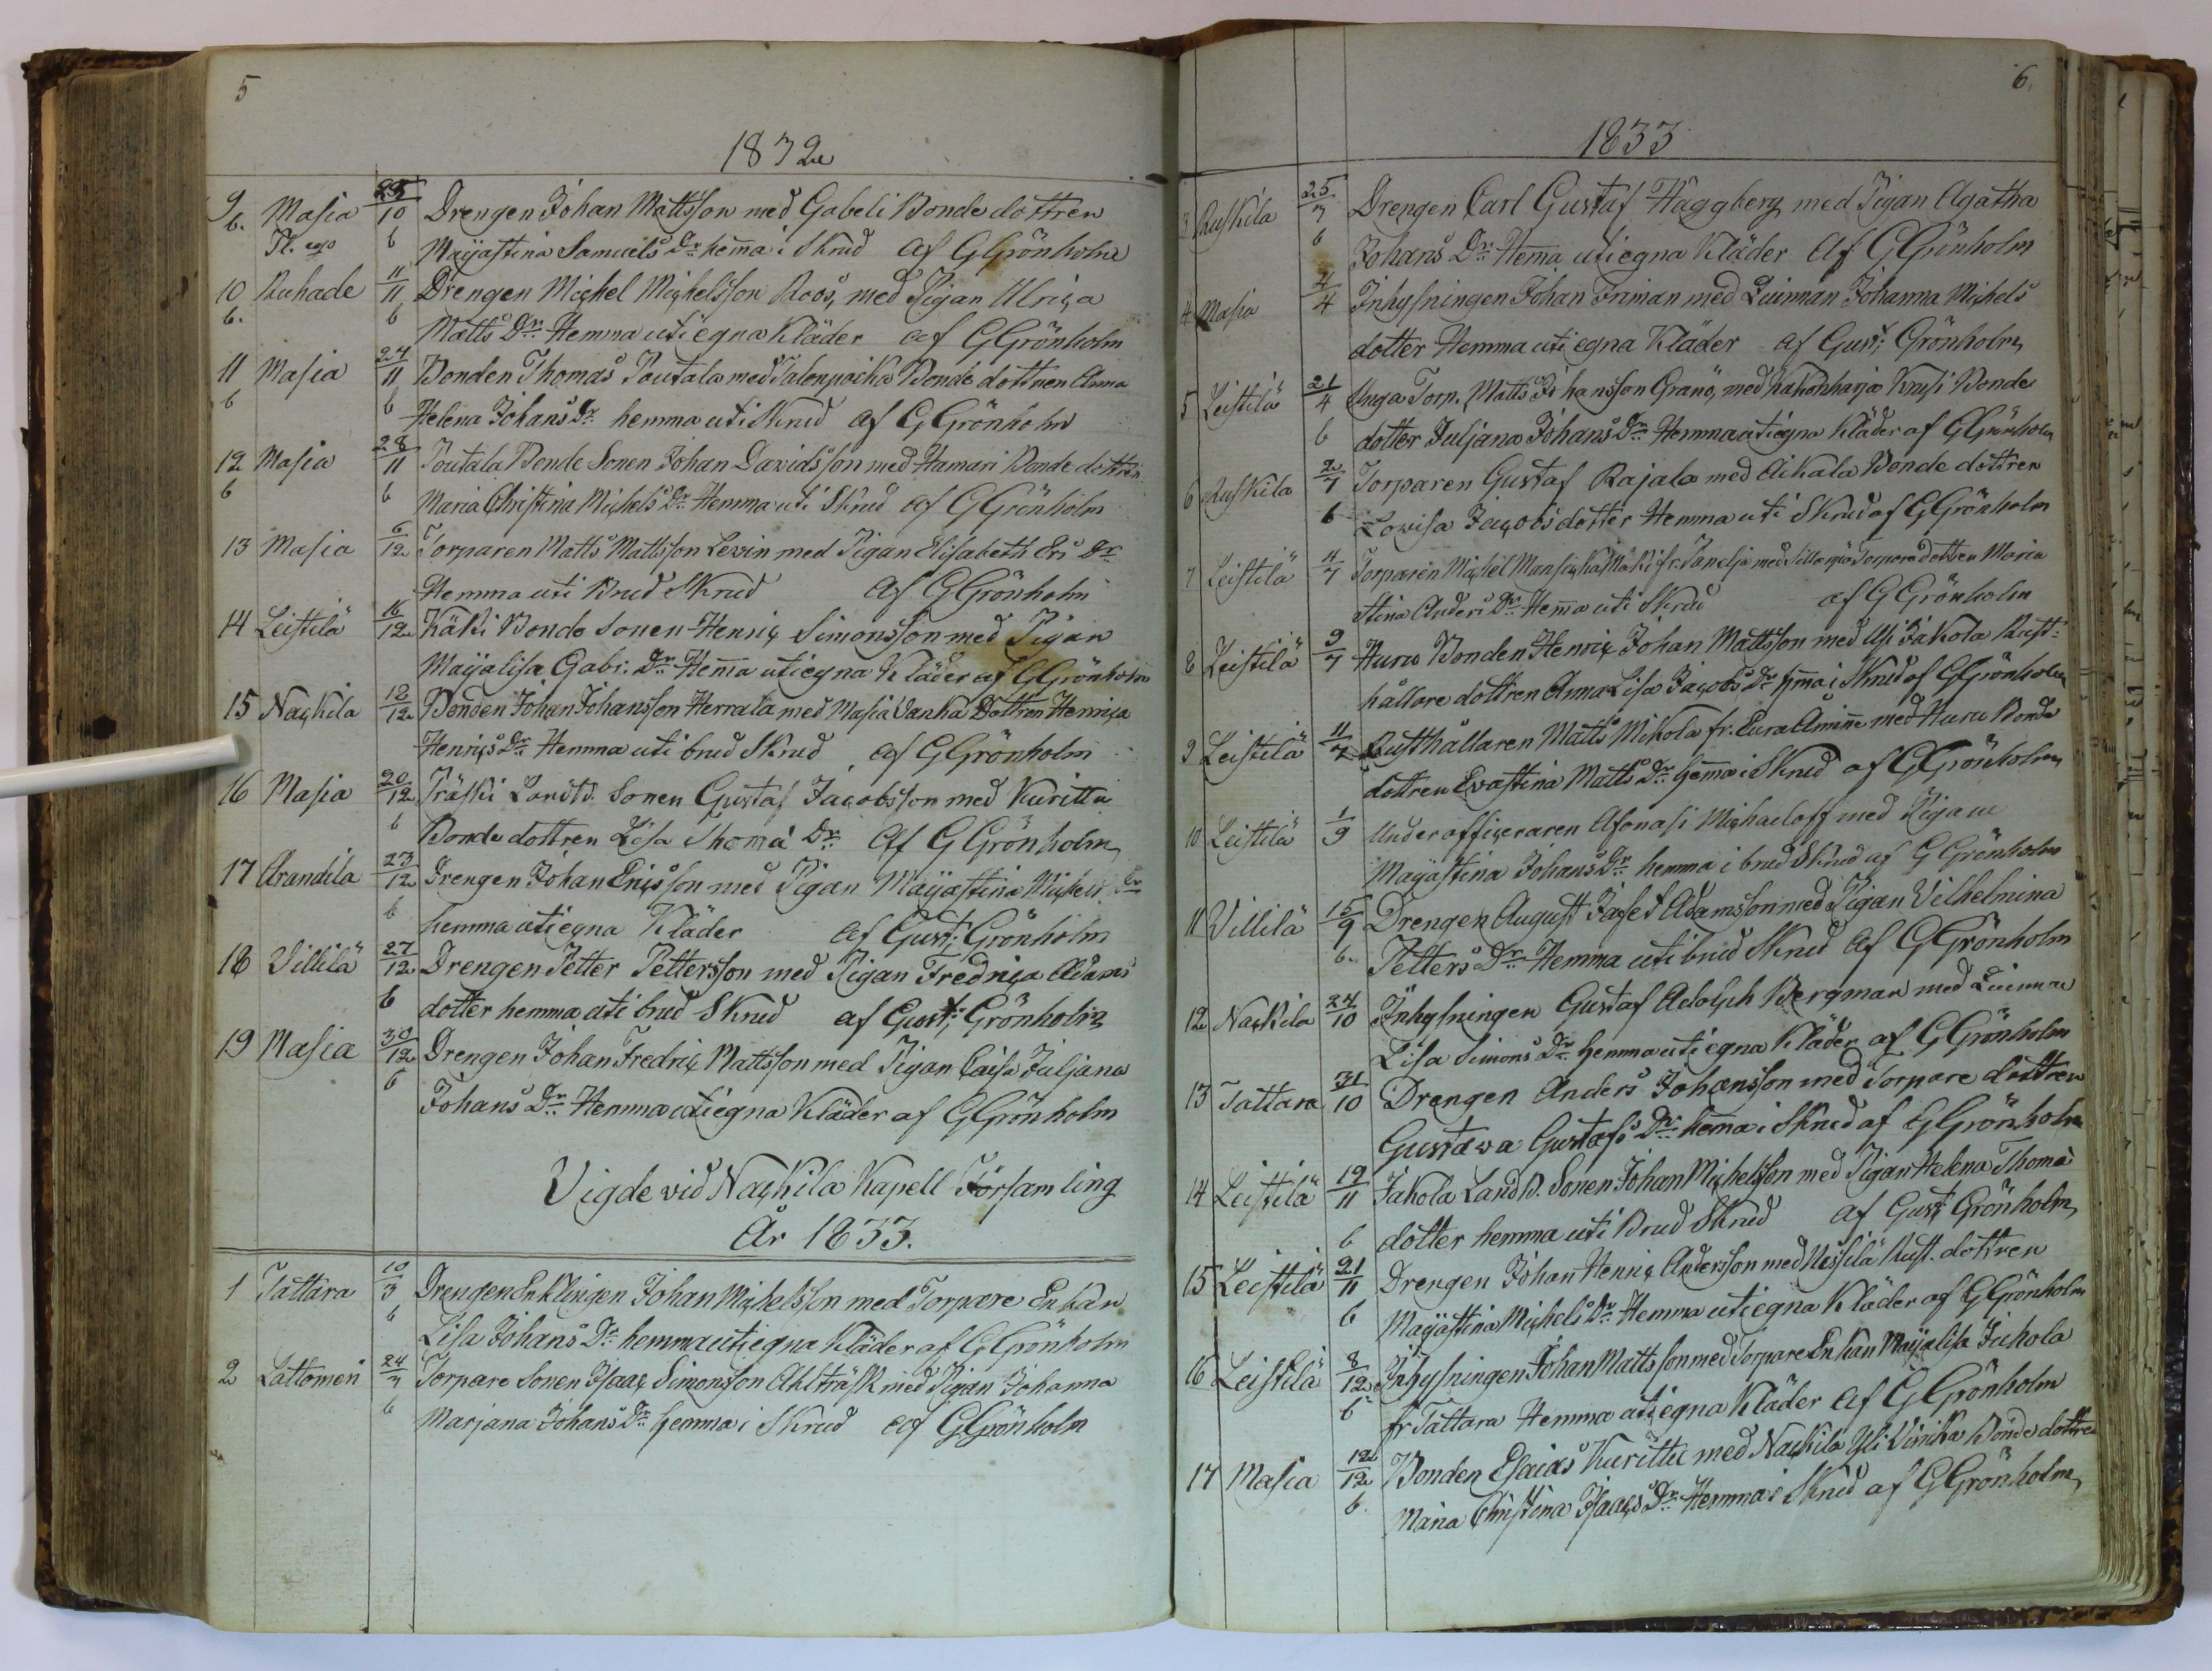 5
1832
9 Masia 25/10 Drengen Johan Mattsson med Gabeli Bonde dottren
6. 6 Maijastina Samuels Dr hema i Skrud af GGrönholm
10 Ruhade 11/11 Drengen Michel Michelsson Roos, med Pigan Ulrica
6. 6 Matts Dr Hemma uti egna Kläder af GGrönholm
11 Masia 24/11 Bonden Thomas Toutala med Talonpoika Bonde dottren Anna
6 6 Helena Johans Dr hemma uti Skrud af GGrönholm
12 Masia 28/11 Toutala Bonde Sonen Johan Davidsson med Hamari Bonde dottren
6 6 Maria Christina Michels Dr Hemma uti Skrud af GGrönholm
13 Masia 6/12 Torparen Matts Mattsson Levin med Pigan Elisabeth Ers Dr
Hemma uti Brud Skrud af GGrönholm
14 Leistilä 16/12 Käki Bonde Sonen Henric Simonsson med Pigan
Maijalisa Gabr: Dr Hema uti egna Kläder af GGrönholm
15 Nackila 18/12 Bonden Johan Johansson Herrala med Masia Vanha Dottren Henrica
Henrics Dr Hemma uti brud Skrud af GGrönholm
16 Masia 20/12 Träski Landtb. Sonen Gustaf Jacobsson med Kuritta
6 Bonde dottren Lisa Thoma Dr af GGrönholm
17 Arandila 23/12 Drengen Johan Ericsson med Pigan Maijastina Michels Dr
6 hemma uti egna Kläder af Gust: Grönholm
18 Villilä 27/12 Drengen Petter Pettersson med Pigan Fredrica Adams
6 dotter hemma uti brud Skrud af Gust: Grönholm
19 Masia 30/12 Drengen Johan Fredric Mattsson med Pigan Caisa Juljana
6 Johans Dr Hemma uti egna Kläder af GGrönholm
Vigde vid Nackila Kapell Församling
År 1833.
1 Tattara 10/3 Drengen Enklingen Johan Michelsson med Torpare Enkan
6 Lisa Johans Dr hemma uti egna Kläder af GGrönholm
2 Lattomeri 24/3 Torpare Sonen Isaac Simonsson Ahlträsk med Pigan Johanna
6 Marjana Johans Dr hemma i Skrud af GGrönholm
6
1833
3 Ruskila 25/3 Drengen Carl Gustaf Häggberg med Pigan Agatha
6 Johans Dr Hema uti egna Kläder af GGrönholm
4 Masia 4/4 Inhysningen Johan Friman med Quinnan Johanna Michels
dotter Hemma uti egna Kläder af Gust: Grönholm
5 Leistilä 21/4 Unga Torp. Matts Johansson Granö, med Kakonharja Krusi Bonde
6 dotter Juljana Johans Dr Hemma uti egna Kläder af GGrönholm
6 Ruskila 2/7 Torparen Gustaf Rajala med Aikala Bonde dottren
6 Lovisa Jacobs dotter Hemma uti Skrud af GGrönholm
7 Leistilä 4/7 Torparen Michel Mansickamäki fr. med Torpare dottren Maria
Stina Anders Dr Hema uti Skrud af GGrönholm
8 Leistilä 9/7 Huru Bonden Henric Johan Mattsson med Usi Jakola Rust-
hållare dottren Anna Lisa Jacobs Dr hma i Skrud af GGrönholm
9 Leistilä 11/7 Rusthållaren Matts Mikola fr. Eura Åminne med Huru Bonde
dottren Evastina Matts Dr hema i Skrud af GGrönholm
10 Leistilä 1/9 Underofficeraren Afonasi Michaeloff med Pigan
Maijastina Johans Dr hemma i brud Skrud af GGrönholm
11 Villilä 15/9 Drengen August Jafet Adamsson med Pigan Vilhelmina
6. Petters Dr Hemma uti brud Skrud af GGrönholm
12 Nackila 24/10 Inhysningen Gustaf Adolph Bergman med Quinnan
Lisa Simons Dr hemma uti egna Kläder af GGrönholm
13 Tattara 31/10 Drengen Anders Johansson med Torpare dottren
Gustawa Gustafs Dr hema i Skrud af GGrönholm
14 Leistilä 19/11 Jakola Landtb. Sonen Johan Michelsson med Pigan Helena Thoma
6 dotter hemma uti Brud Skrud af Gust Grönholm
15 Leistilä 21/11 Drengen Johan Henric Andersson med Kessilä Rust. dottren
6 Maijastina Michels Dr Hemma uti egna Kläder af GGrönholm
16 Leistilä 8/12 Inhysningen Johan Mattsson med Torpare Enkan Maijalisa Juhola
6 fr Tattara Hemma uti egna Kläder af GGrönholm
17 Masia 12/12 Bonden Esaias Kurittu med Nackila Yli Vinika Bonde dottren
6. Maria Christina Isaacs Dr Hemma i Skrud af GGrönholm